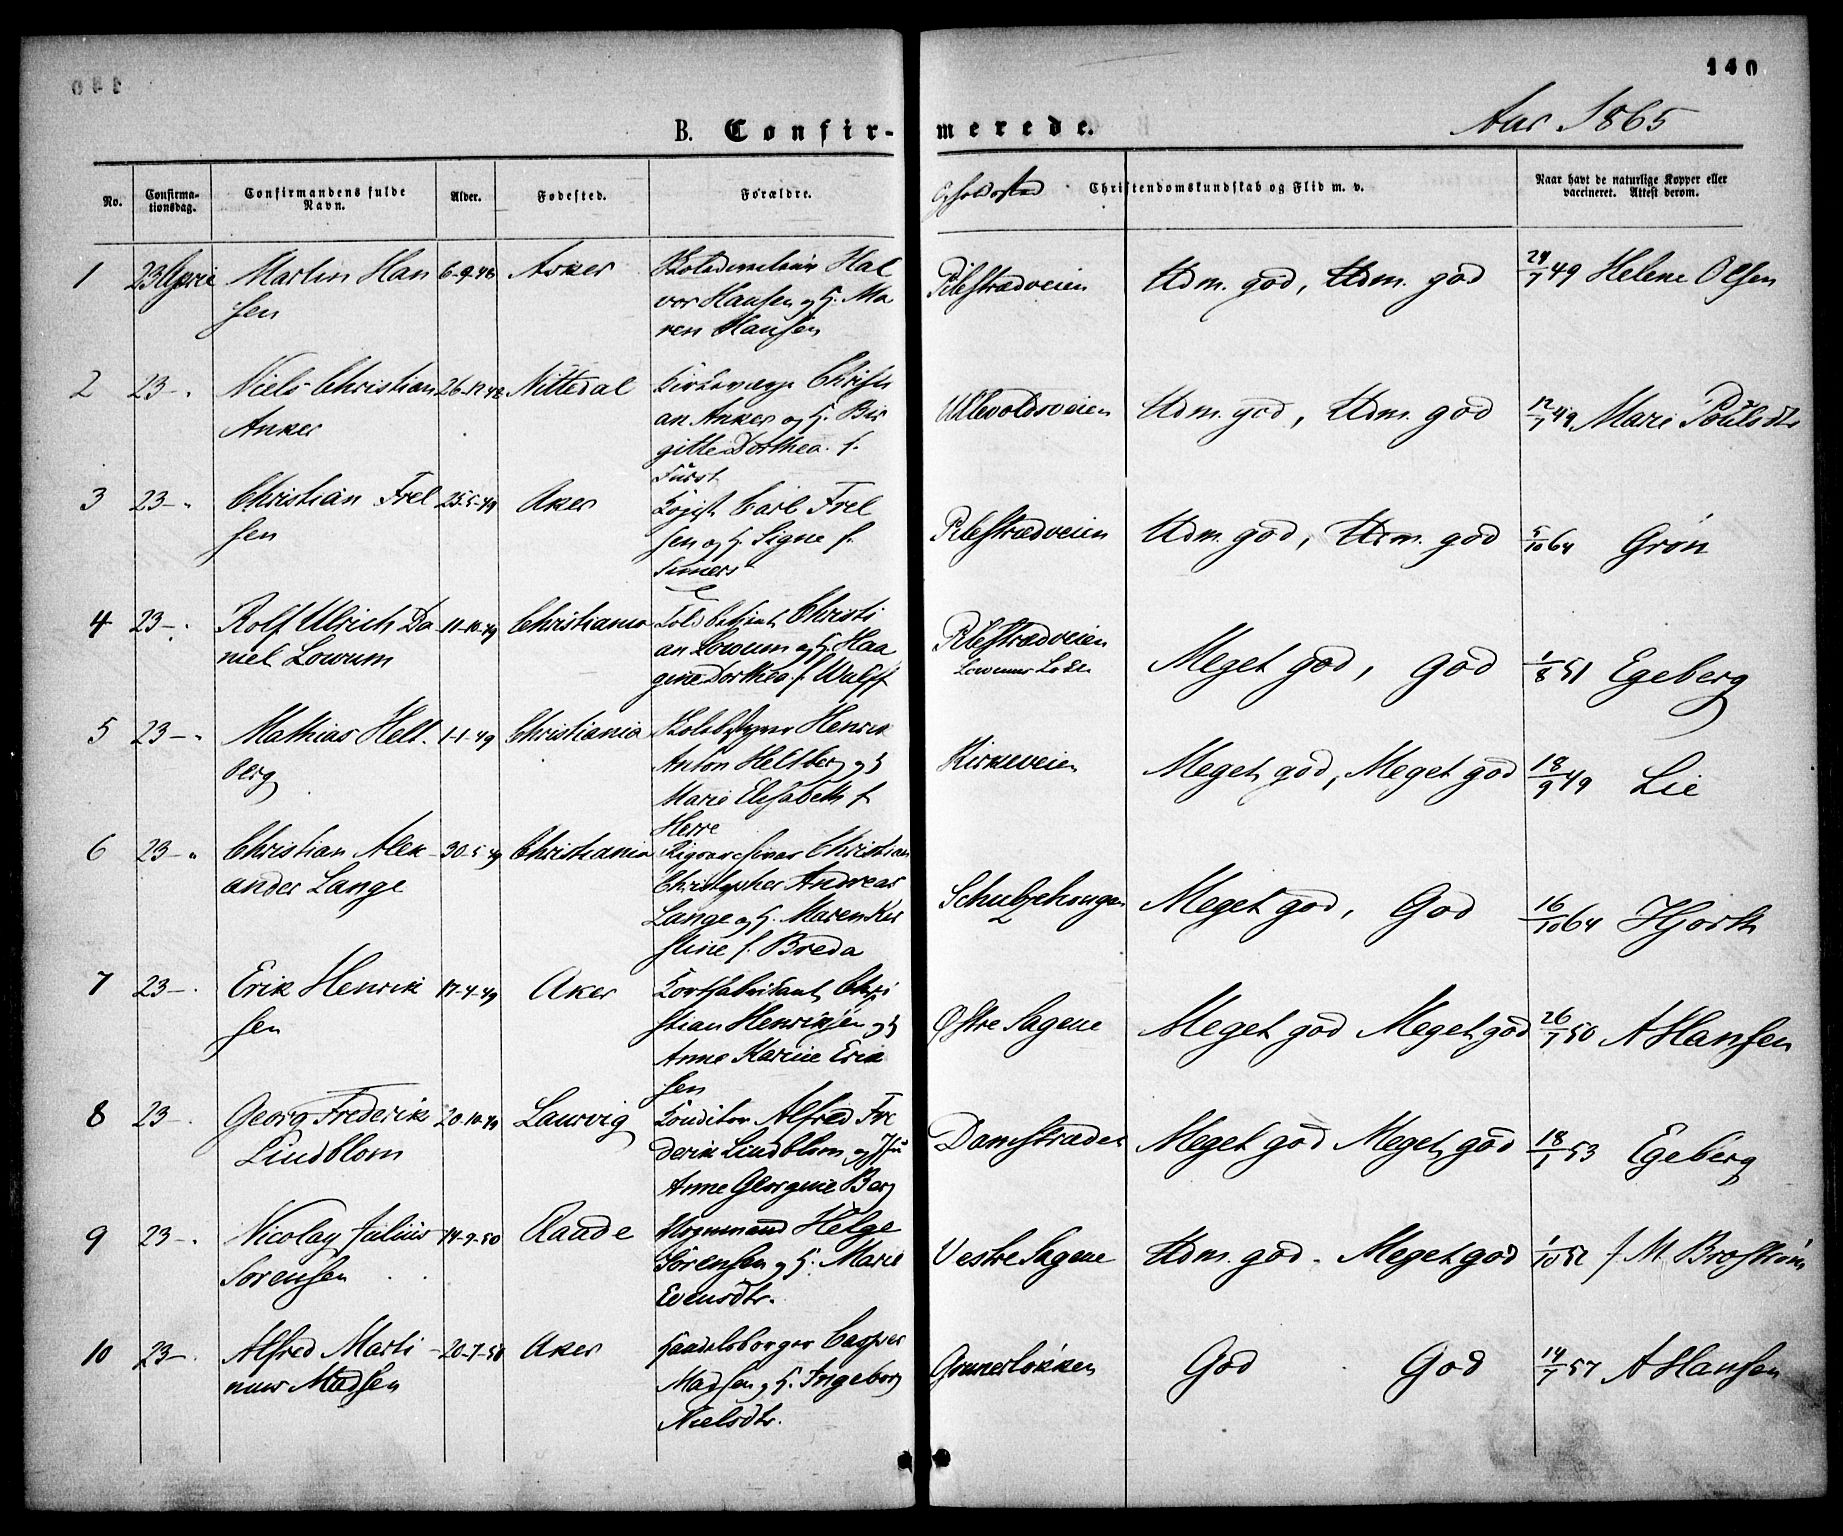 140
B. Confir-merede.
Aar 1865
No.
Confirma-
tionsdag.
Confirmandens fulde
Navn.
Alder.
Fødested.
Forældre.
Opholdssted
Christendomskundskab og Flid m. v.
Naar havt de naturlige Kopper eller
vaccineret. Attest derom.
1 23 April Martin Han 6-9-48 Aker Hal
sen vor Hansen og H. Ma
ren Hansen
Pilestrædveien Udm. god, Udm. god 24/7 49 Helene Olsen
2 23 - " Niels Christian 26-12-48 Nittedal Kirkeværge Christi
Anker an Anker og H. Bir
gitte Dorthea f.
Fürst
Ullevoldsveien Udm. god, Udm. god 12/7 49 Mari Poulsdtr
3 23 - " Christian Frel 25-5-49 Aker Logist Carl Frel
sen sen og H. Signe f.
Simers
Pilestrædveien Udm. god, Udm. god 5/10 64 Grøn
4 23 - " Rolf Ulrich Da 11-10-49 Christiania Toldbetjent Christi
niel Lowum an Lowum og H. Haa
gine Dorthea f. Wulff
Pilestrædveien
Lowums Løkke
Meget god, god 1/8 51 Egeberg
5 23 - " Mathias Helt 1-1-49 Christiania Henrik
berg Anton Heltberg og H
Marie Elisabeth f.
Herre
Kirkeveien Meget god, Meget god 18/9 49 Lie
6 23 - " Christian Alex 30-5-49 Christiania Rigsarchivar Christian
ander Lange Christopher Andreas
Lange og H. Maren Kir
stine f. Breda
Schultzehougen Meget god, God 16/10 64 Hjorth
7 23 - " Erik Henrik 17-4-49 Aker Kortfabrikant Chri
sen stian Henriksen og H
Anne Karine Erik
sen
Østre Sagene Meget god Meget god 26/7 50 A Hansen
8 23 - " Georg Frederik 20-10-49 Laurvig Konditor Alfred Fre
Lindblom derik Lindblom og Hu
Anne Georgine Berg
Damstrædet Meget god Meget god 18/1 53 Egeberg
9 23 - " Nicolay Julius 14-9-50 Raade Vognmand Helge
Sørensen Sørensen og H. Marie
Evensdtr.
Vestre Sagene Udm. god. Meget god 1/10 52 f. M. Brostrøm
10 23 - " Alfred Marti 20-7-50 Aker Handelsborger Casper
nius Madsen Madsen og H. Ingeborg
Nielsdtr.
Grünerløkken God God 14/7 57 A Hansen